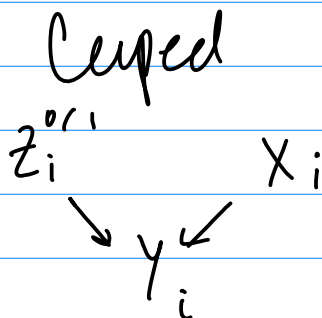 Cuped
Z_i^{0/1} X_i
Y_i